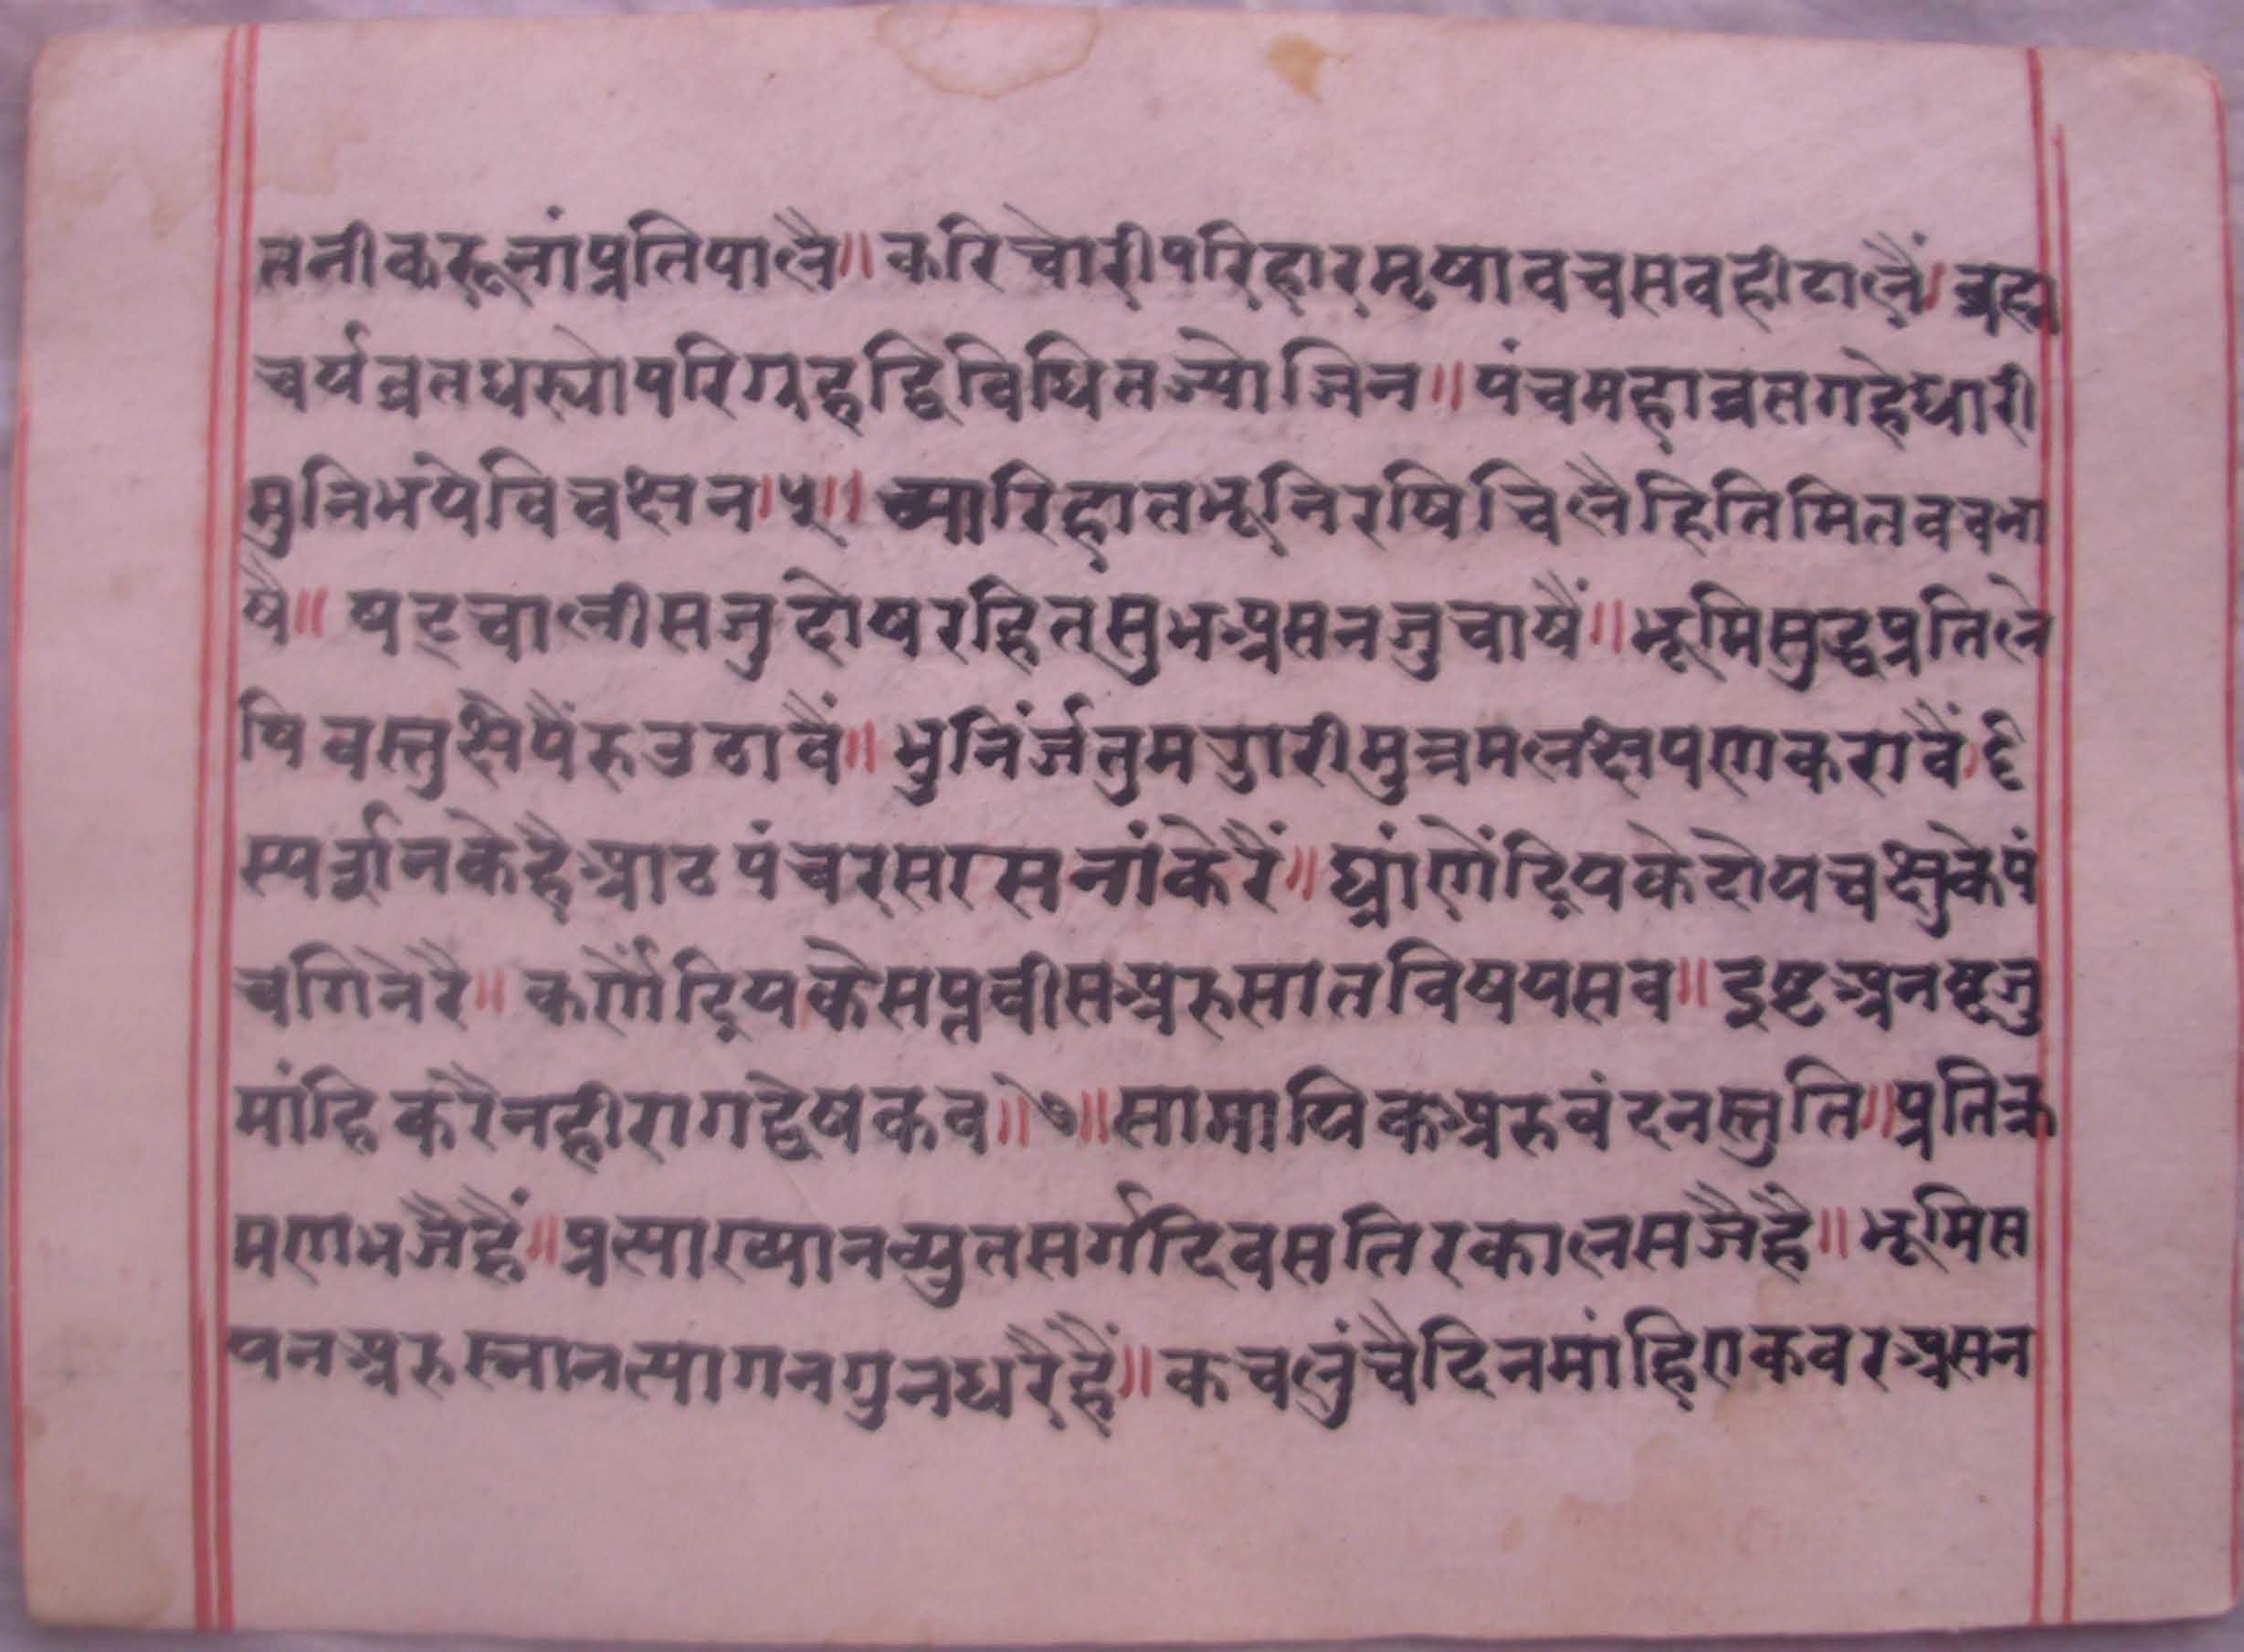 तनीकरूनांप्रतिपालै॥ करि चोरीपरिहारमृषावचसवहीटालैं। व्रह्म
चर्यव्रतधस्योपरिग्रहद्विविधितज्योजिन॥ पंचमहाव्रतगहेधारी
मुनिभयेविचक्षन।५॥ च्यारिहातभूनिरषिचिलैहितिमितवचना
षै॥ षट्चालीसजुदोषरहितसुभअसनजुचाषैं॥ भूमिसुद्धप्रतिले
षि वस्तुक्षेपैंरुउठावैं॥ भुनिंर्जंतुमगुारीमुत्रमलक्षेपणकरावैं।६
स्पर्शनकेहैआठ पंचरसरासनांकेरैं॥ घ्रांणेंद्रियकेदोयचक्षुकेपं
चगिनेरै॥ कर्णेंद्रियकेसप्तवीसअरुसातविषयसव॥ इष्टअनष्टजु
मांहि करैनहीरागद्वेषकव॥७॥सामायिकअरुवंदनस्तुति॥प्रतिक्र
मणभजैहैं॥प्रत्याख्यानव्युतसर्गदिवसतिरकालसजैहै॥ भूमिस
यनअरुस्नानत्यागनगुनधरैहैं॥ कचलुंचैदिनमांहिएकवरअसन